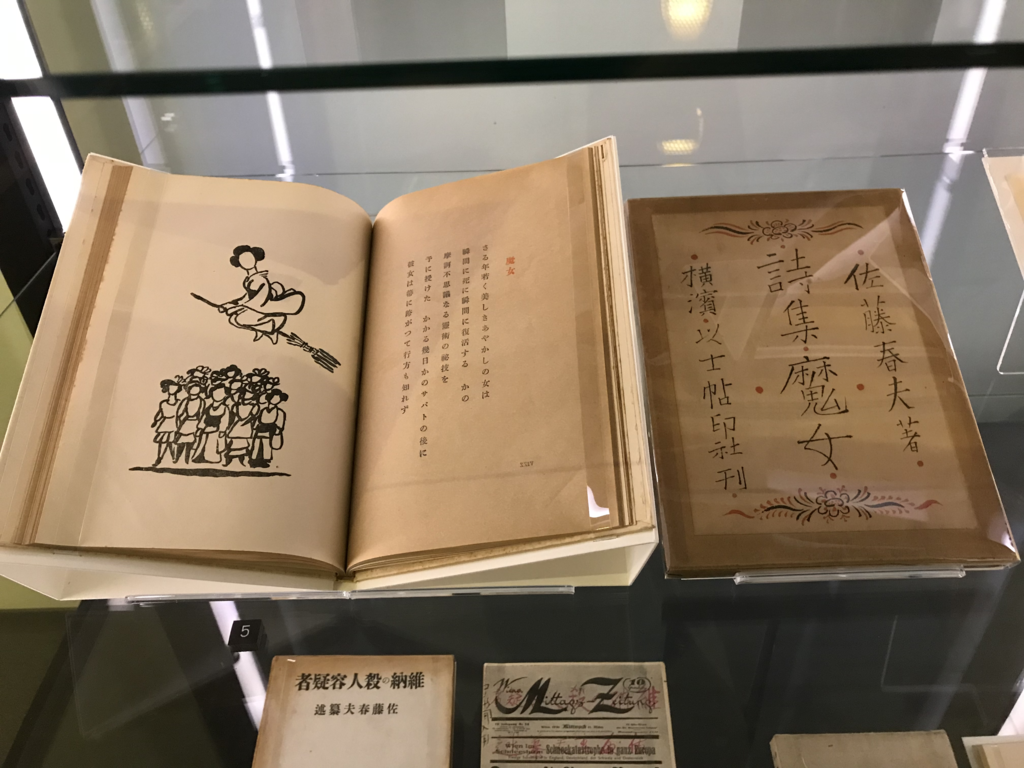 魔女
さる年若く美しきあやかしの女は
瞬間に死に瞬間に復活する かの
摩訶不思議なる靈術の祕技を
予に授けた かかる幾日かのサバトの後に
彼女は箒に跨がつて行方も知れず
佐藤春夫著
詩集魔女
横濱以士帖印社刊
5
維納の殺人容疑者
佐藤春夫纂述
Mittags-Zeitung
10
Schneekatastrophe in ganz Europa